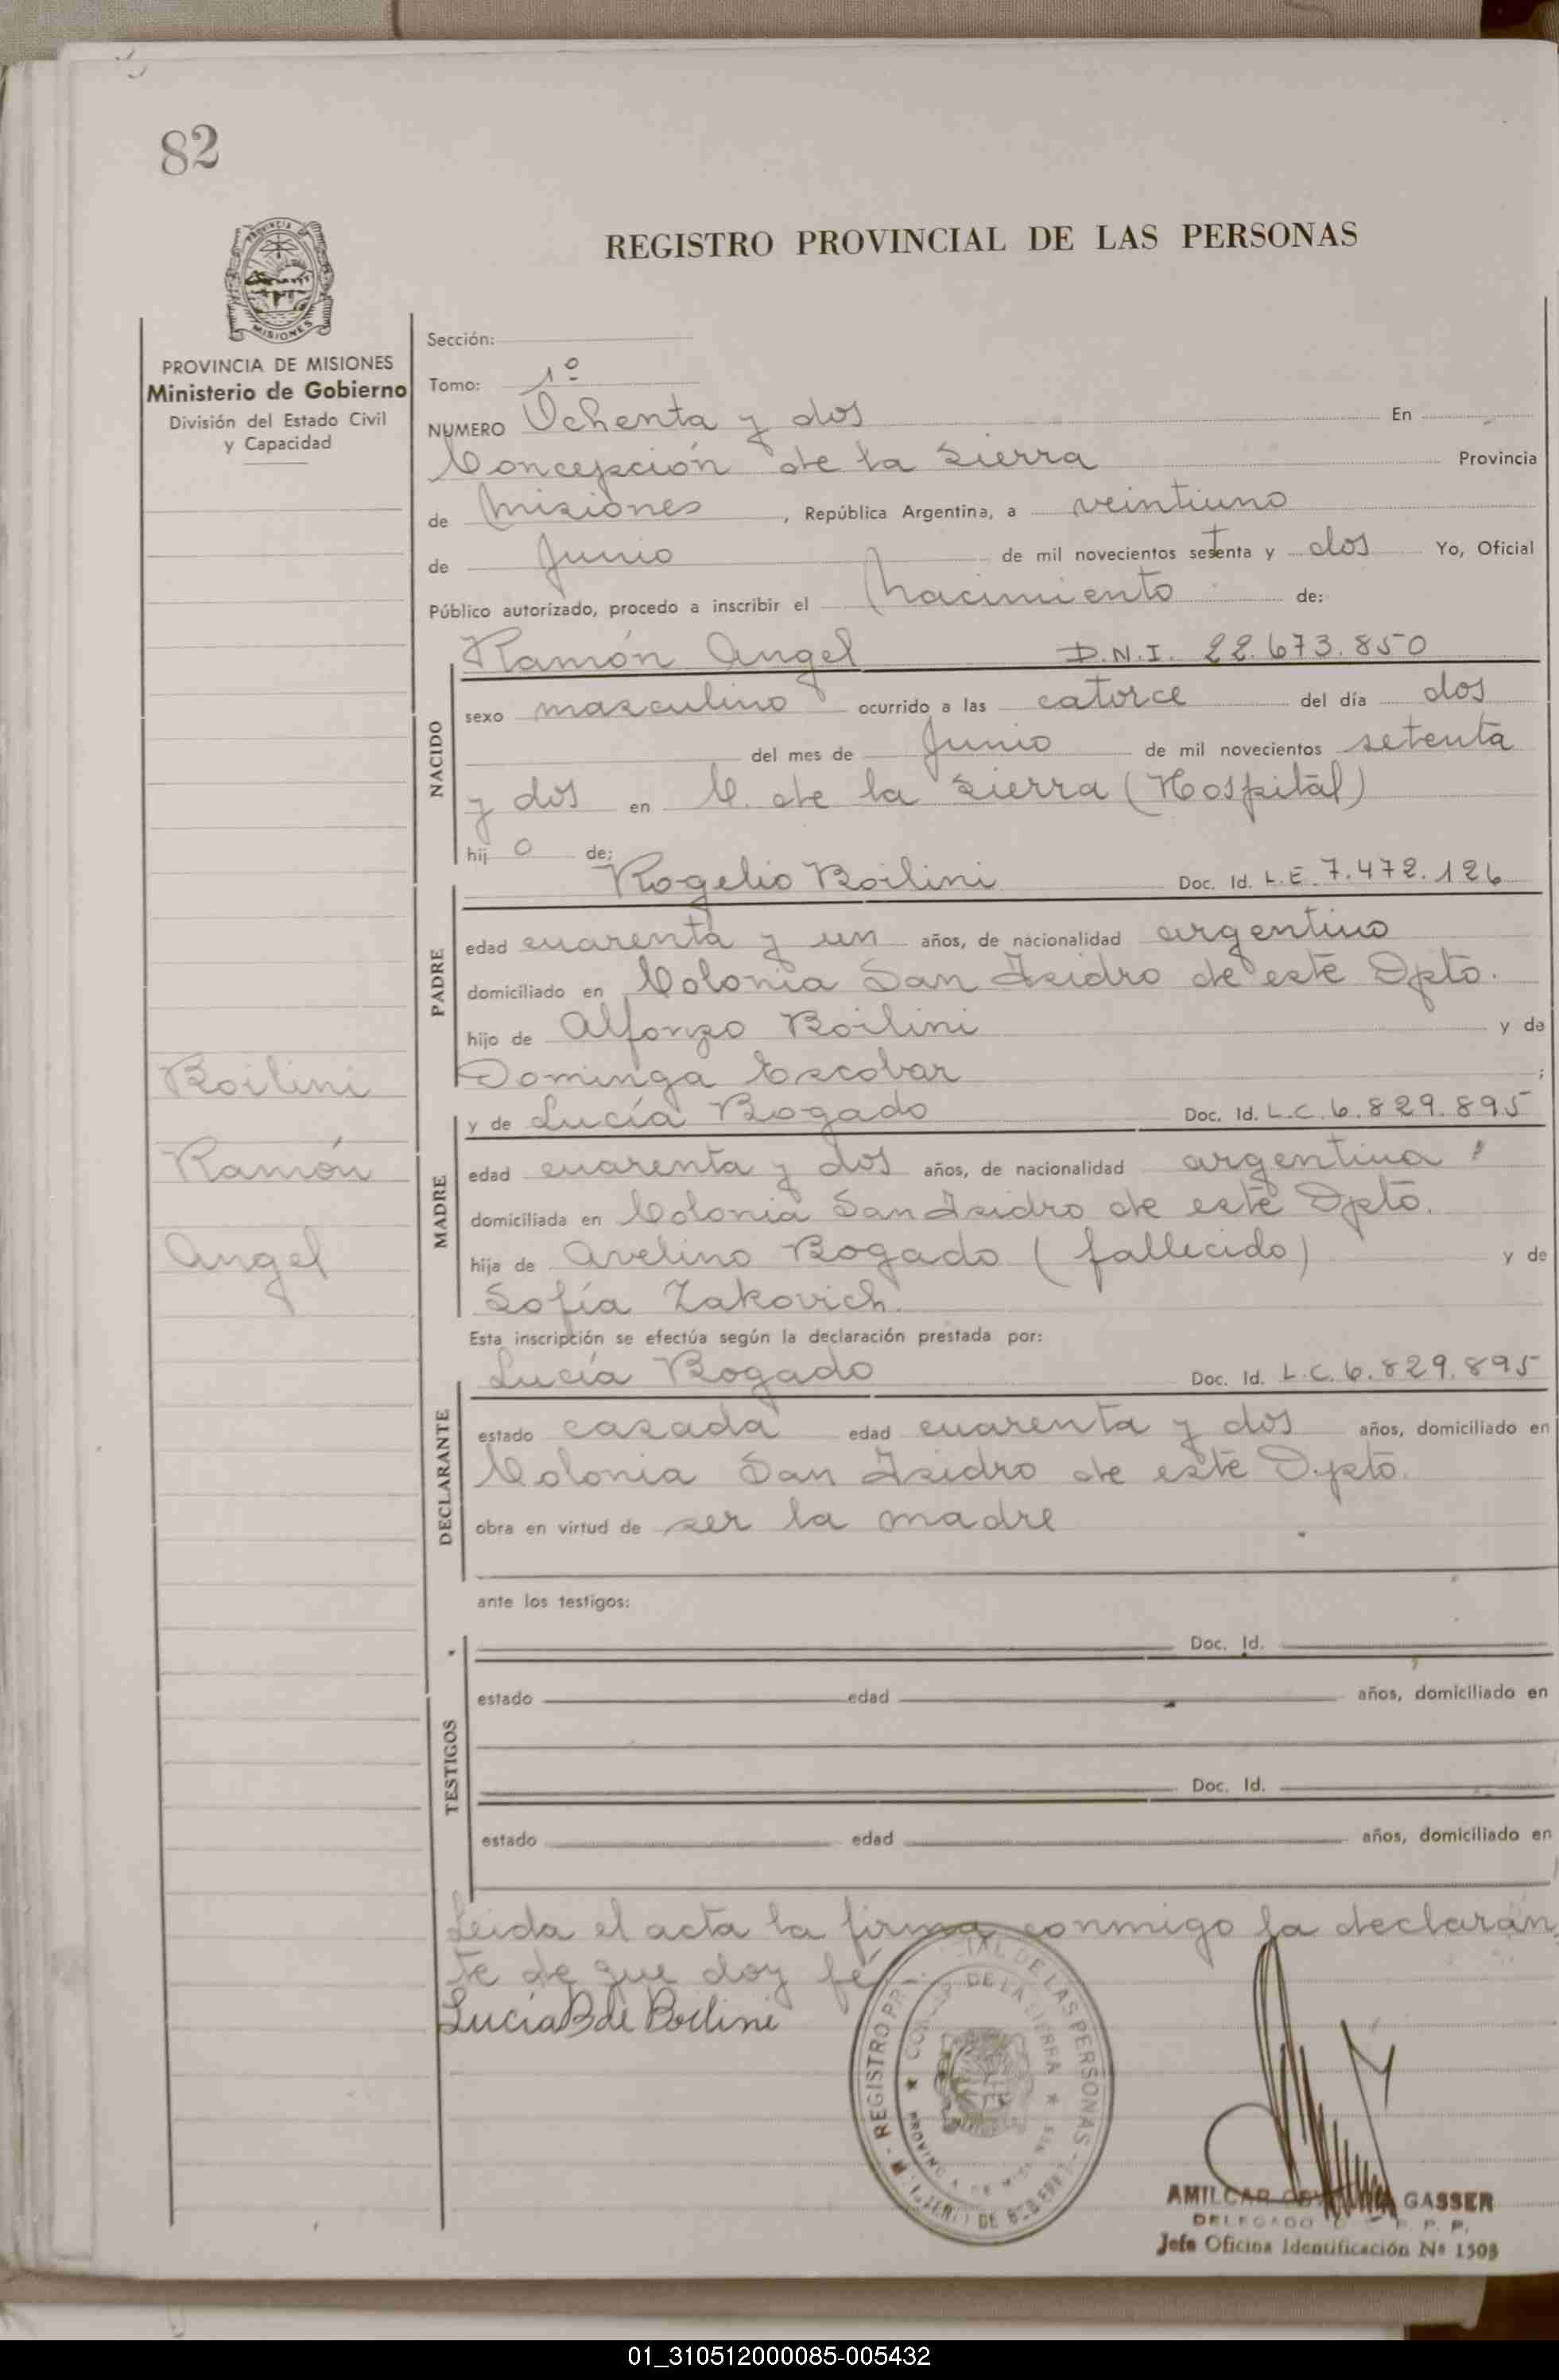 82
REGISTRO PROVINCIAL DE LAS PERSONAS
PROVINCIA
MISIONES
PROVINCIA DE MISIONES
Ministerio de Gobierno
División del Estado Civil
y Capacidad
Sección:
Tomo: 1º
NUMERO Ochenta y dos En
Concepción de la Sierra Provincia
de Misiones , República Argentina, a veintiuno
de Junio de mil novecientos setenta y dos Yo, Oficial
Público autorizado, procedo a inscribir el Nacimiento de:
Ramón Angel D.N.I. 22.673.850
NACIDO
sexo masculino ocurrido a las catorce del día dos
del mes de Junio de mil novecientos setenta
y dos en C. de la Sierra (Hospital)
hij o de:
Rogelio Boilini Doc. Id. L.E. 7.472.126
PADRE
edad cuarenta y un años, de nacionalidad argentino
domiciliado en Colonia San Isidro de este Dpto.
hijo de Alfonzo Boilini y de
Dominga Escobar ;
Boilini
Ramón
Angel
y de Lucía Bogado Doc. Id. L.C. 6.829.895
MADRE
edad cuarenta y dos años, de nacionalidad argentina
domiciliada en Colonia San Isidro de este Dpto.
hija de Avelino Bogado (fallecido) y de
Sofía Zakovich.
Esta inscripción se efectúa según la declaración prestada por:
Lucía Bogado Doc. Id. L.C. 6.829.895
DECLARANTE
estado casada edad cuarenta y dos años, domiciliado en
Colonia San Isidro de este Dpto.
obra en virtud de ser la madre
ante los testigos:
TESTIGOS
Doc. Id.
estado edad años, domiciliado en
Doc. Id.
estado edad años, domiciliado en
Leida el acta la firma conmigo la declaran
te de que doy fé
Lucía B de Boilini
REGISTRO DE LAS PERSONAS
DE LA SIERRA
AMILCAR GASSER
DELEGADO
Jefe Oficina Identificación Nº 1505
01_310512000085-005432